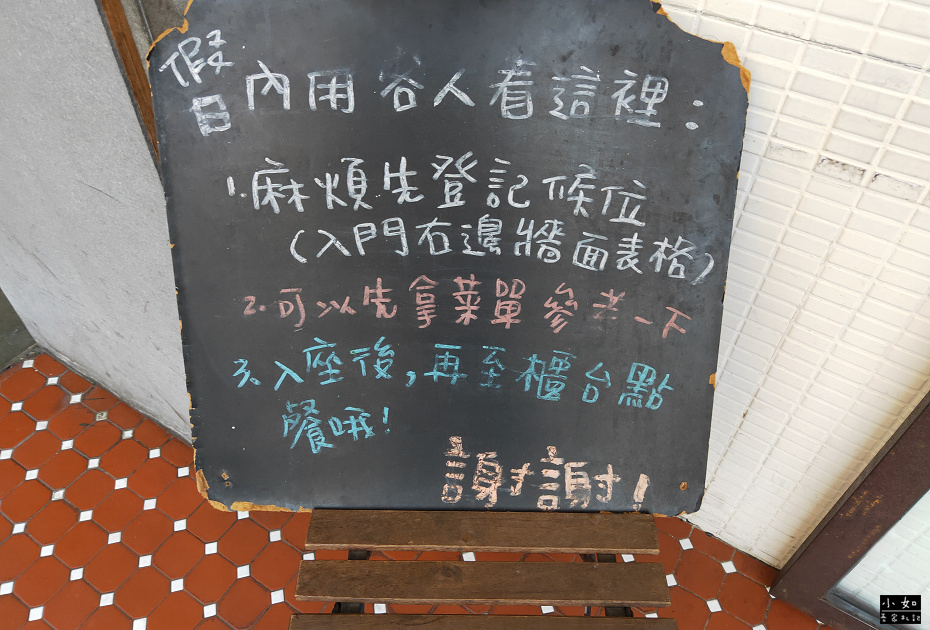 假日內用客人看這裡：
1.麻煩先登記候位
(入門右邊牆面表格)
2.可以先拿菜單參考一下
3.入座後,再至櫃台點
餐哦!
謝謝!
小如